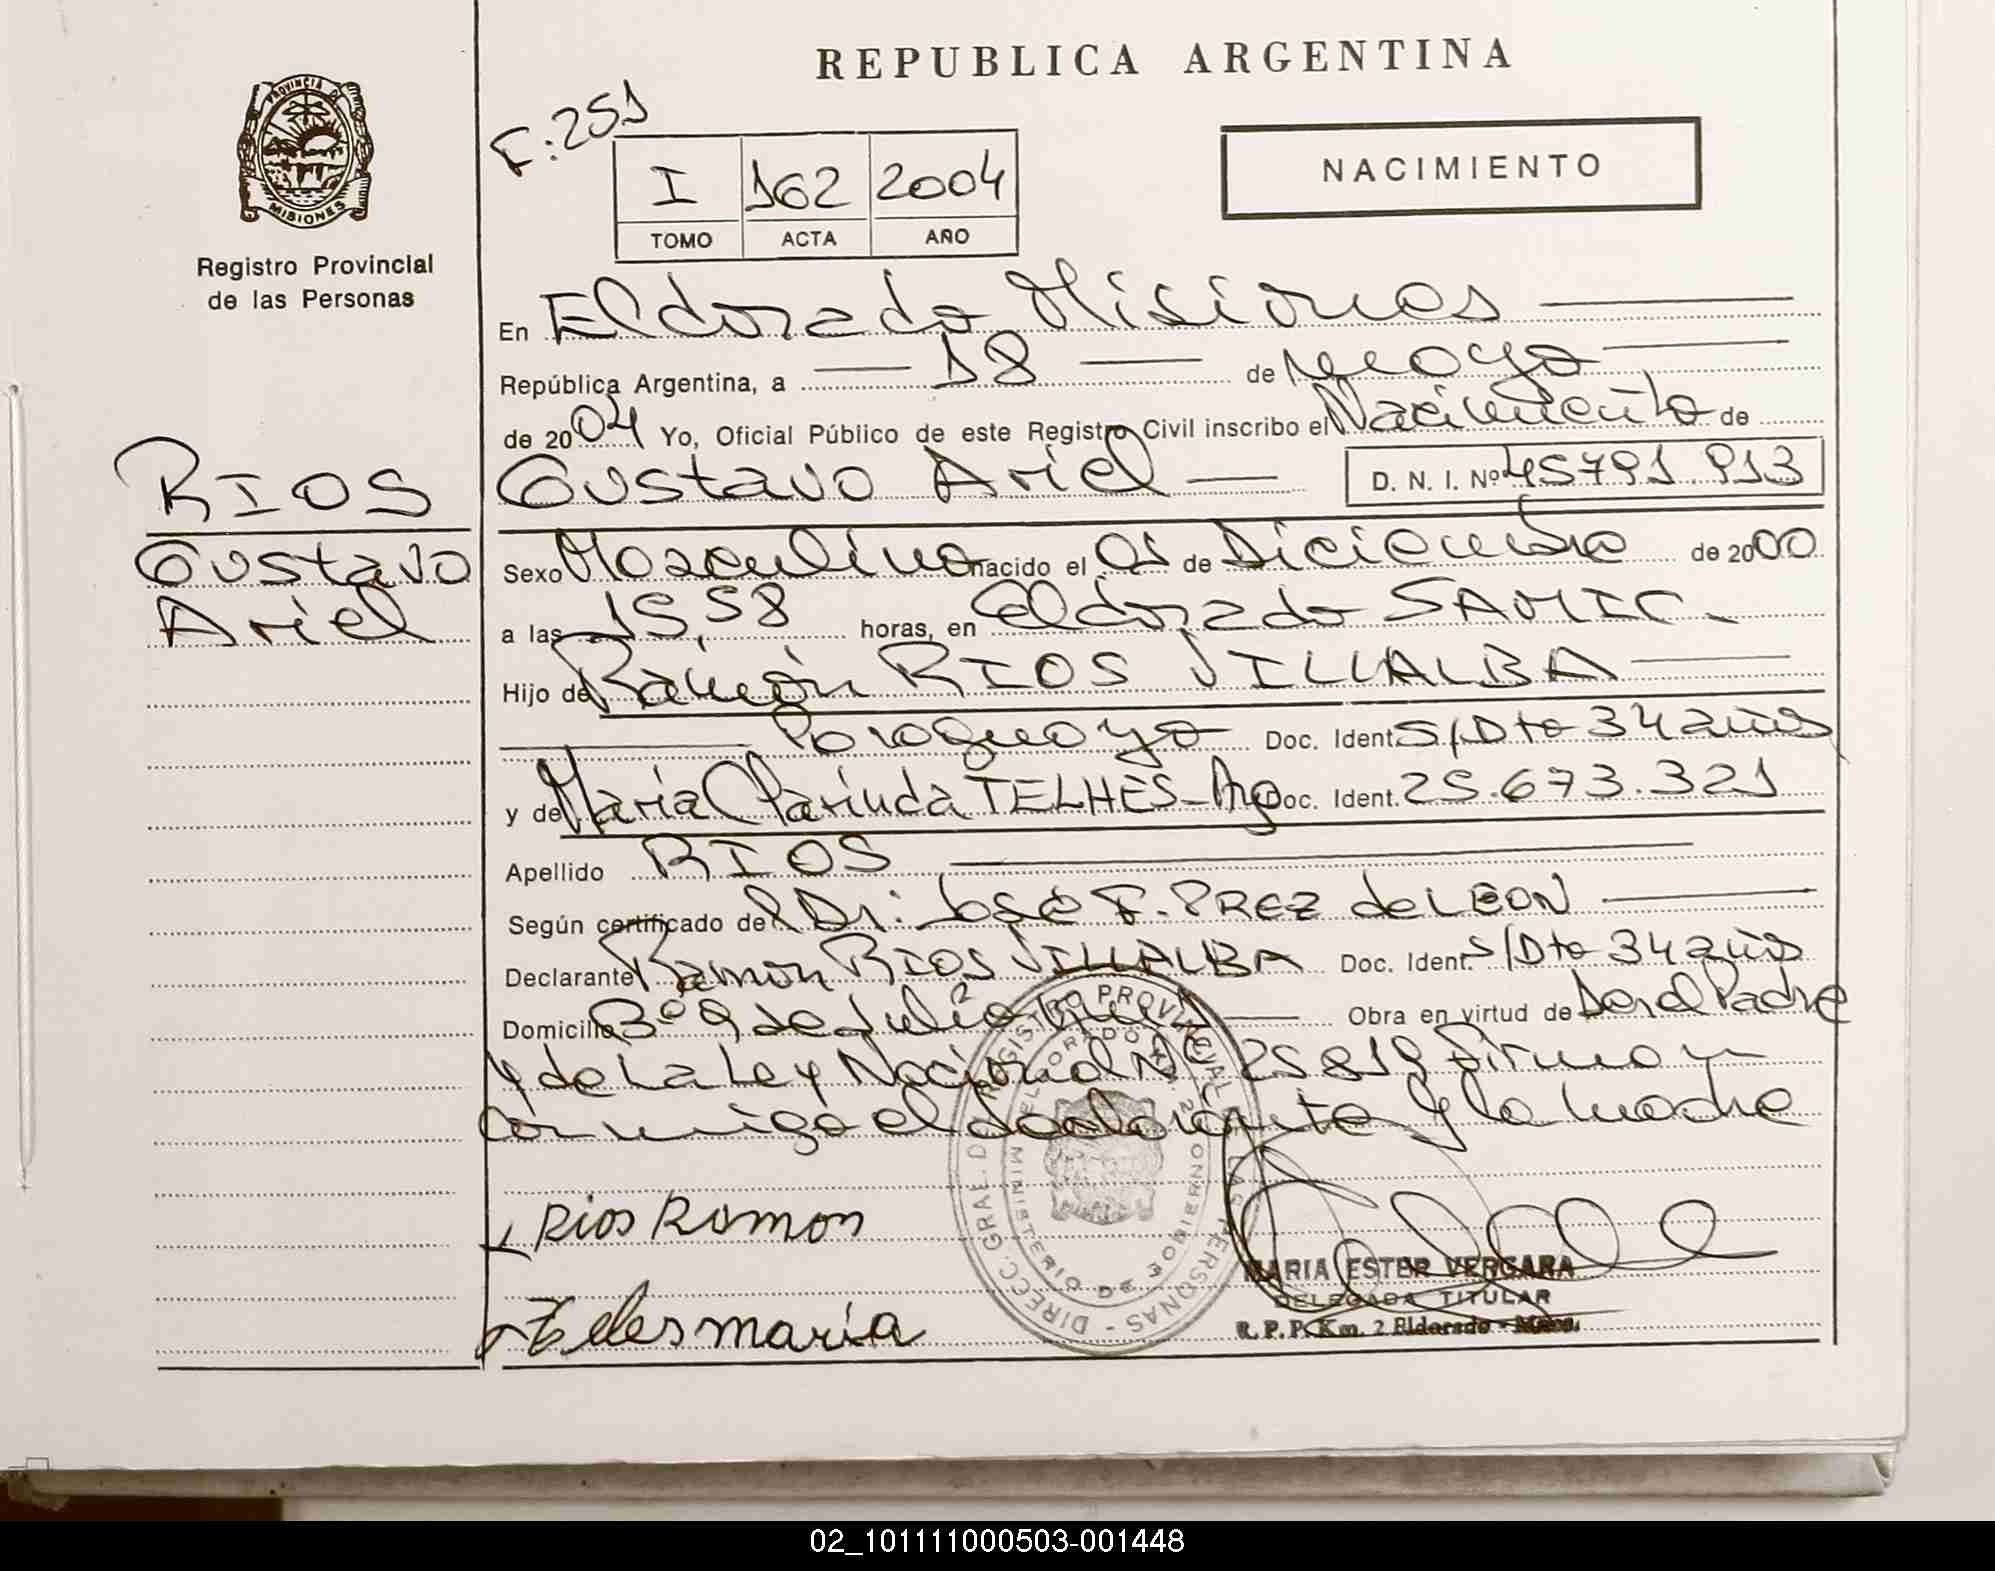 REPUBLICA ARGENTINA
PROVINCIA DE
MISIONES
Registro Provincial
de las Personas
F:251
I 162 2004
TOMO ACTA AÑO
NACIMIENTO
En Eldorado Misiones
República Argentina, a 18 de mayo
de 2004 Yo, Oficial Público de este Registro Civil inscribo el Nacimiento de
RIOS
Gustavo Ariel
Gustavo Ariel D. N. I. Nº 45791 913
Sexo Masculino nacido el 01 de Diciembre de 2000
a las 15,58 horas, en Eldorado SAMIC.
Hijo de Ramón RIOS VILLALBA
Paraguayo Doc. Ident. S/Dto 34 años
y de María Clarinda TELHES - Arg Doc. Ident. 25.673.321
Apellido RIOS
Según certificado del Dr: José F. PREZ de LEON
Declarante Ramon RIOS VILLALBA Doc. Ident. S/Dto 34 años
Domicilio Bº 9 de Julio Obra en virtud de Ser el Padre
y de La Ley Nacional Nº 25819 Firman
conmigo el declarante y la madre
DIRECC. GRAL. DEL REGISTRO PROVINCIAL DE LAS PERSONAS
MINISTERIO DE GOBIERNO
ELDORADO Km 2
Rios Ramon
Teles maria
MARIA ESTER VERGARA
DELEGADA TITULAR
R.P.P. Km. 2 Eldorado - Mnes.
02_101111000503-001448